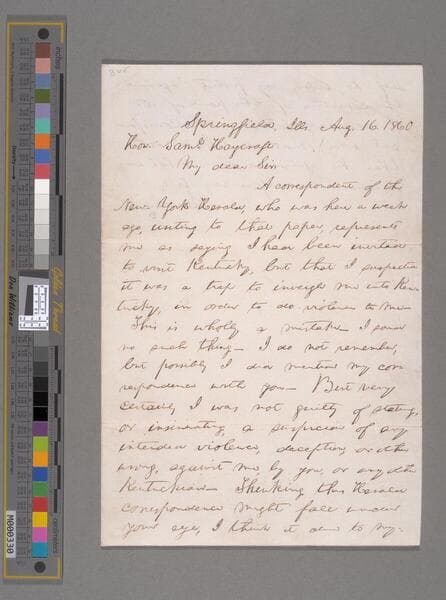 Springfield, Ills. Aug. 16. 1860
Hon. Saml. Haycraft
My dear Sir:
A correspondent of the
New-York Herald, who was here a week
ago, writing to that paper, represents
me as saying I had been invited
to visit Kentucky, but that I suspected
it was a trap to inveigle me into Ken-
tucky, in order to do violence to me—
This is wholly a mistake— I said
no such thing— I do not remember,
but possibly I did mention my cor-
respondence with you— But very
certainly I was not guilty of stating,
or insinuating, a suspicion of any
intended violence, deception, or other
wrong, against me, by you, or any other
Kentuckian— Thinking this Herald
correspondence might fall under
your eye, I think it due to my-
inches
centimeters
Don Williams
Golden Thread
M000330